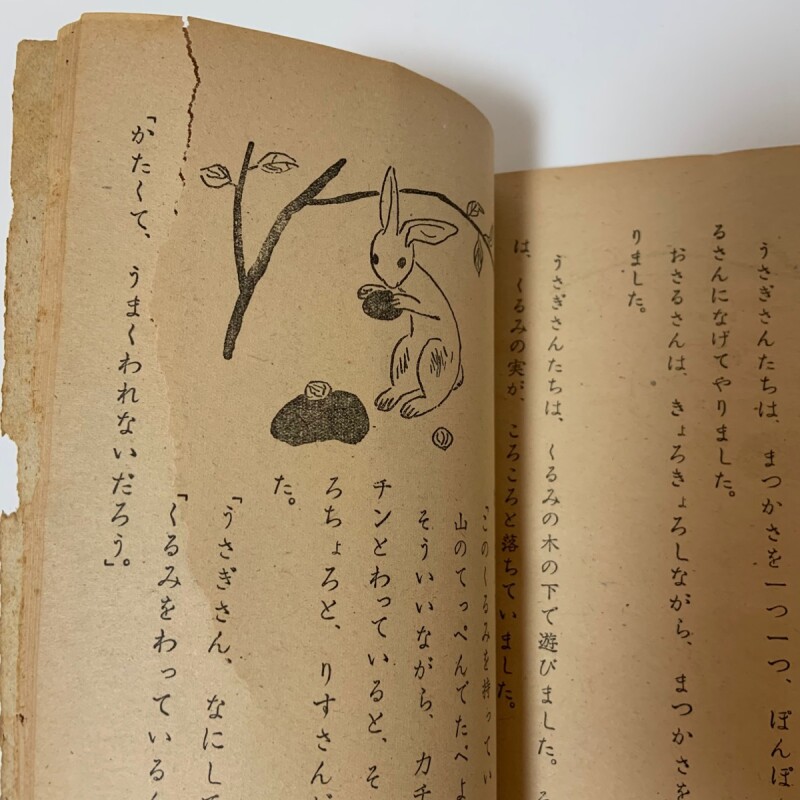 うさぎさんたちは、まつかさを一つ一つ、ぽんぽ
るさんになげてやりました。
おさるさんは、きょろきょろしながら、まつかさを
りました。
うさぎさんたちは、くるみの木の下で遊びました。
は、くるみの実が、ころころと落ちていました。
「このくるみを持ってい
山のてっぺんでたべよ
そういいながら、カチ
チンとわっていると、そ
ろちょろと、りすさんが
た。
「うさぎさん、なにして
「くるみをわっている
「かたくて、うまくわれないだろう。」